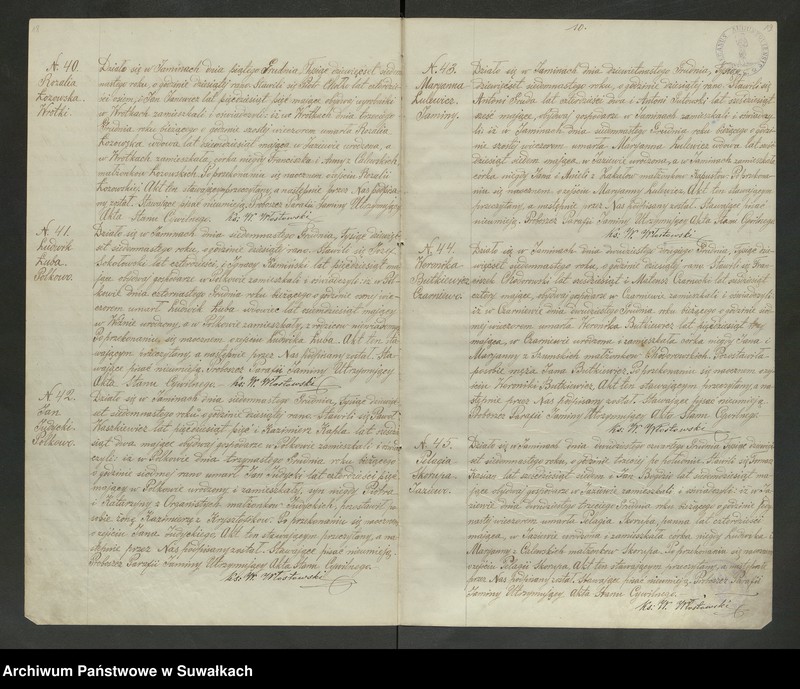 N. 40.
Rozalia
Kozowska.
Wrotki.
Działo się w Jaminach dnia piątego Grudnia, Tysiąc dziewięćset siedem
nastego roku, o godzinie dziesiątej rano. Stawili się Piotr
lat czterdzieści osiem, i Jan lat pięćdziesiąt pięć mające obydwaj
w Wrotkach zamieszkali i oświadczyli iż we Wrotkach dnia
Grudnia roku bieżącego o godzinie szóstej wieczorem umarła Rozalia
wdowa lat mająca w Jaziewie urodzona, a
w Wrotkach zamieszkała, córka niegdy Franciszka i Anny z
małżonków. Po przekonaniu się naocznem o zejściu Rozalii
Akt ten stawającym przeczytany, a następnie przez Nas podpisa-
ny został. Stawające pisać nieumieją. Proboszcz Parafii Jaminy Utrzymujący
Akta Stanu Cywilnego. ks. W. Włostowski
N. 41.
Ludwik
Łuba.
Polkowo.
Działo się w Jaminach dnia siedemnastego Grudnia, Tysiąc dziewięć-
set siedemnastego roku, o godzinie dziesiątej rano. Stawili się Józef
Sokołowski lat czterdzieści, i Ignacy Kamiński lat pięćdziesiąt ma-
jące obydwaj gospodarze w Polkowie zamieszkali i oświadczyli iż w Pol-
kowie dnia czternastego Grudnia roku bieżącego o godzinie wie-
czorem umarł Ludwik Łuba wdowiec lat mający
w urodzony, a w Polkowie zamieszkały, z rodziców niewiadomych.
Po przekonaniu się naocznem o zejściu Ludwika Łuba. Akt ten sta-
wającym przeczytany, a następnie przez Nas podpisany został. Sta-
wające pisać nieumieją. Proboszcz Parafii Jaminy Utrzymujący
Akta Stanu Cywilnego. ks. W. Włostowski
N. 42.
Jan
Judycki.
Polkowo.
Działo się w Jaminach dnia siedemnastego Grudnia, Tysiąc dziewięć-
set siedemnastego roku o godzinie dziesiątej rano. Stawili się Paweł
Haszkiewicz lat pięćdziesiąt pięć i Kazimierz Kapla lat
dwa mające obydwaj gospodarze w Polkowie zamieszkali i oświad-
czyli iż w Polkowie dnia trzynastego Grudnia roku bieżącego
o godzinie siódmej rano umarł Jan Judycki lat czterdzieści pięć
mający w Polkowie urodzony i zamieszkały, syn niegdy Piotra
i Katarzyny z małżonków Judyckich, pozostawił po
sobie żonę Kazimierę z Krzysztofków. Po przekonaniu się naocznem
o zejściu Jana Judyckiego. Akt ten stawającym przeczytany, a na-
stępnie przez Nas podpisany został. Stawające pisać nieumieją.
Proboszcz Parafii Jaminy Utrzymujący Akta Stanu Cywilnego.
ks. W. Włostowski
10.
N. 43.
Maryanna
Kulewicz.
Jaminy.
Działo się w Jaminach dnia dziewiętnastego Grudnia, Tysiąc
dziewięćset siedemnastego roku, o godzinie dziesiątej rano. Stawili się
Antoni lat czterdzieści dwa i Antoni lat sześćdziesiąt
sześć mające, obydwaj gospodarze w Jaminach zamieszkali i oświadczy-
li iż w Jaminach dnia siedemnastego Grudnia roku bieżącego o godzi-
nie szóstej wieczorem umarła Maryanna Kulewicz wdowa lat
siedem mająca, w Jaziewie urodzona, a w Jaminach zamieszkała
córka niegdy Jana i Anieli z małżonków. Po przekona-
niu się naocznem, o zejściu Maryanny Kulewicz. Akt ten stawającym
przeczytany, a następnie przez Nas podpisany został. Stawające pisać
nieumieją. Proboszcz Parafii Jaminy Utrzymujący Akta Stanu Cywilnego
ks. W. Włostowski
N. 44.
Weronika
Butkiewicz.
Czarniewo.
Działo się w Jaminach dnia dwudziestego drugiego Grudnia, Tysiąc dzie-
więćset siedemnastego roku, o godzinie dziesiątej rano. Stawili się
lat sześćdziesiąt i Mateusz Czarnecki lat sześćdziesiąt
cztery mające, obydwaj gospodarze w Czarniewie zamieszkali i oświadczyli
iż w Czarniewie dnia dwudziestego Grudnia roku bieżącego o godzinie
wieczorem umarła Weronika Butkiewicz lat pięćdziesiąt trzy
mająca, w Czarniewie urodzona i zamieszkała córka niegdy Jana i
Maryanny z małżonków. Pozostawiła
po sobie męża Jana Butkiewicz. Po przekonaniu się naocznem o zej-
ściu Weroniki Butkiewicz, Akt ten stawającym przeczytany, a na-
stępnie przez Nas podpisany został. Stawające pisać nieumieją.
Proboszcz Parafii Jaminy Utrzymujący Akta Stanu Cywilnego.
ks. W. Włostowski
N. 45.
Pelagia
Skorupa.
Jaziewo.
Działo się w Jaminach dnia dwudziestego czwartego Grudnia Tysiąc dziewięć-
set siedemnastego roku, o godzinie trzeciej po południu. Stawili się Tomasz
lat sześćdziesiąt siedem i Jan lat siedemdziesiąt ma-
jące obydwaj gospodarze w Jaziewie zamieszkali i oświadczyli: iż w Ja-
ziewie dnia dwudziestego trzeciego Grudnia roku bieżącego o godzinie
wieczorem umarła Pelagia Skorupa, panna lat czterdzieści
mająca, w Jaziewie urodzona i zamieszkała córka niegdy i
Maryanny z małżonków Skorupa. Po przekonaniu się naocznem
o zejściu Pelagii Skorupa, Akt ten stawającym przeczytany, a następnie
przez Nas podpisany został. Stawające pisać nieumieją. Proboszcz Parafii
Jaminy Utrzymujący Akta Stanu Cywilnego.
ks. W. Włostowski
Archiwum Państwowe w Suwałkach